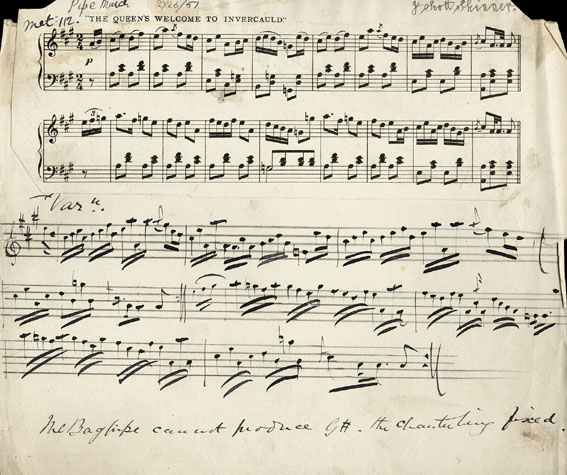 Pipe March 2726/51 J. Scott Skinner.
met 112. "THE QUEEN'S WELCOME TO INVERCAULD"
p
3
Varn.
The Bagpipe cannot produce G#. the chanter being fixed.